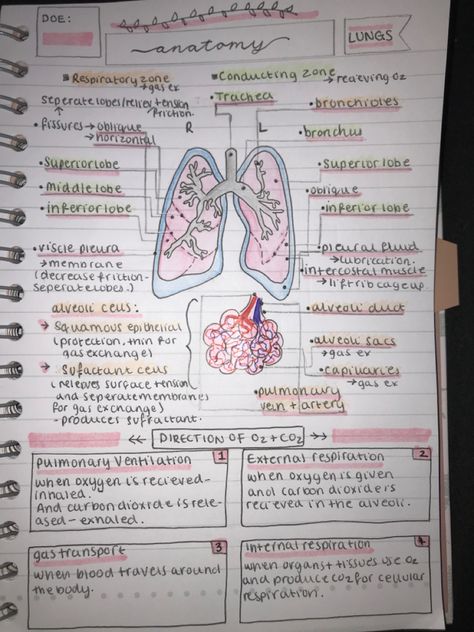 DOE:
anatomy
LUNGS
• Respiratory zone
→ gas ex
• Conducting zone
→ recieving O2
seperate lobes/reliev tension
friction.
• Trachea
• bronchioles
• fissures → oblique
→ horizontal
R
L
• bronchus
• Superior lobe
• Superior lobe
• Middle lobe
• oblique
• inferior lobe
• inferior lobe
• viscle pleura
→ membrane
(decrease friction-
seperate lobes.)
• pleural fluid
→ lubrication.
• intercostal muscle
→ lift rib cage up.
alveoli cells:
→ Squamous epithelial
(protection, thin for
gas exchange)
→ Sufactant cells
(relieves surface tension
and seperate membranes
for gas exchange)
- produces suffractant.
• alveoli duct
• alveoli sacs
→ gas ex
• capillaries
→ gas ex
• pulmonary
vein + artery
<< DIRECTION OF O2 + CO2 >>
1
Pulmonary Ventilation
when oxygen is recieved-
inhaled.
And carbon dioxide is rele-
ased - exhaled.
2
External respiration
when oxygen is given
and carbon dioxide is
recieved in the alveoli.
3
gas transport
when blood travels around
the body.
4
Internal respiration
when organs + tissues use O2
and produce CO2 for cellular
respiration.